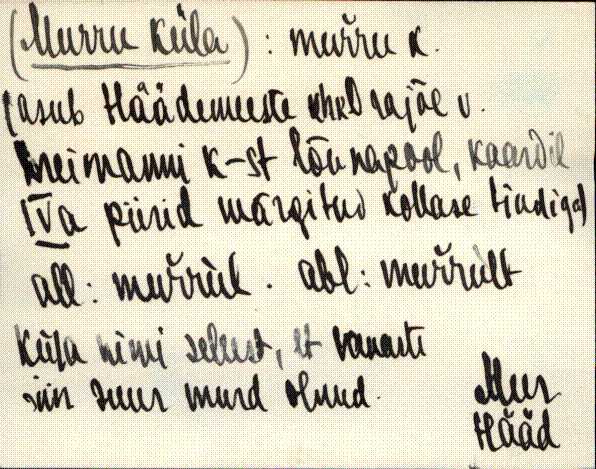 (Murru küla) : muřřu k.
(asub Häädemeeste khkD rajäe v.
Treimanni k-st lõunapool, kaardil
IVa piirid märgitud kollase tindiga)
all: muřřùl. abl: muřřùlt
Küla nimi sellest, et vanaste
siin suur murd olnud.
Mur
Hääd